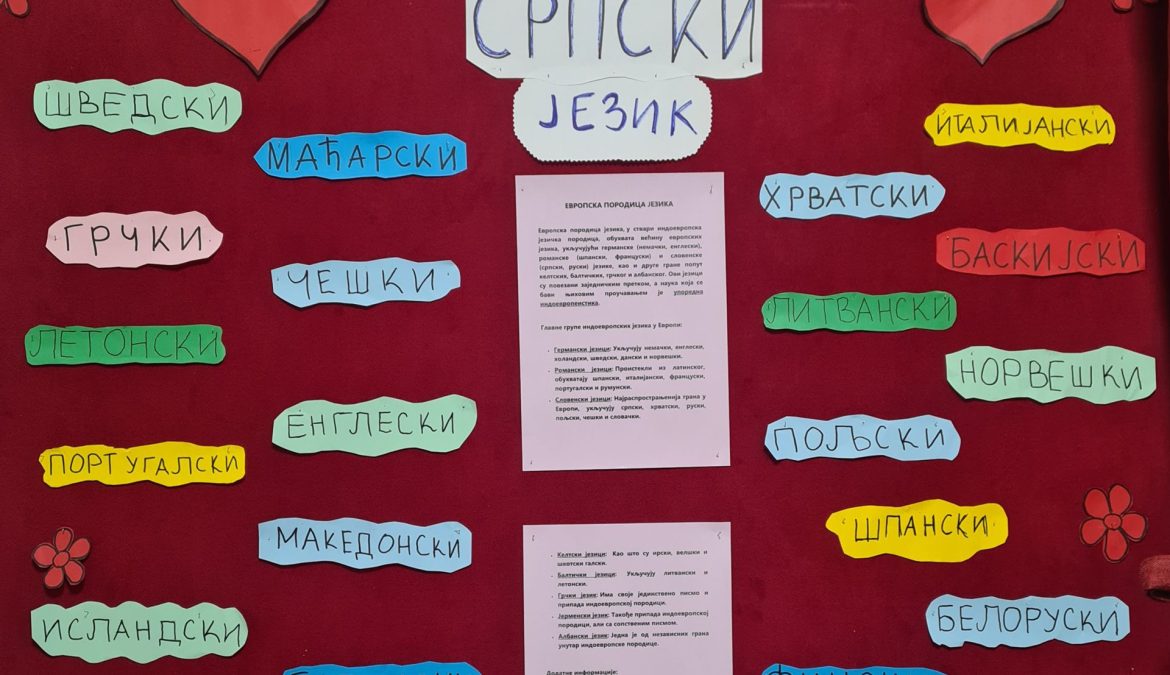 СРПСКИ
ЈЕЗИК
ШВЕДСКИ
МАЂАРСКИ
ГРЧКИ
ЧЕШКИ
ЛЕТОНСКИ
ЕНГЛЕСКИ
ПОРТУГАЛСКИ
МАКЕДОНСКИ
ИСЛАНДСКИ
ЕВРОПСКА ПОРОДИЦА ЈЕЗИКА
Европска породица језика, у ствари индоевропска
језичка породица, обухвата већину европских
језика, укључујући германске (немачки, енглески),
романске (шпански, француски) и словенске
(српски, руски) језике, као и друге гране попут
келтских, балтичких, грчког и албанског. Ови језици
су повезани заједничким претком, а наука која се
бави њиховим проучавањем је упоредна
индоевропеистика.
Главне групе индоевропских језика у Европи:
- Германски језици: Укључују немачки, енглески,
холандски, шведски, дански и норвешки.
- Романски језици: Проистекли из латинског,
обухватају шпански, италијански, француски,
португалски и румунски.
- Словенски језици: Најраспрострањенија грана у
Европи, укључују српски, хрватски, руски,
пољски, чешки и словачки.
- Келтски језици: Као што су ирски, велшки и
шкотски галски.
- Балтички језици: Укључују литвански и
летонски.
- Грчки језик: Има своје јединствено писмо и
припада индоевропској породици.
- Јерменски језик: Такође припада индоевропској
породици, али са сопственим писмом.
- Албански језик: Једна је од независних грана
унутар индоевропске породице.
Додатне информације:
ИТАЛИЈАНСКИ
ХРВАТСКИ
БАСКИЈСКИ
ЛИТВАНСКИ
НОРВЕШКИ
ПОЉСКИ
ШПАНСКИ
БЕЛОРУСКИ